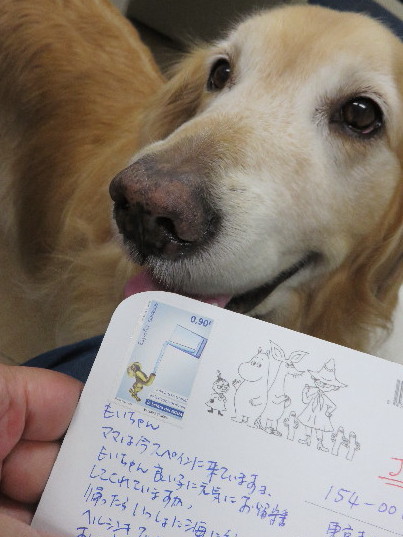 0.90€
もいちゃん
ママは今スペインに来ています。
もいちゃん良い子に元気にお留守番
してくれていますか。
帰ったらいっしょに海に
ヘルシンキ
154-00
東京
J